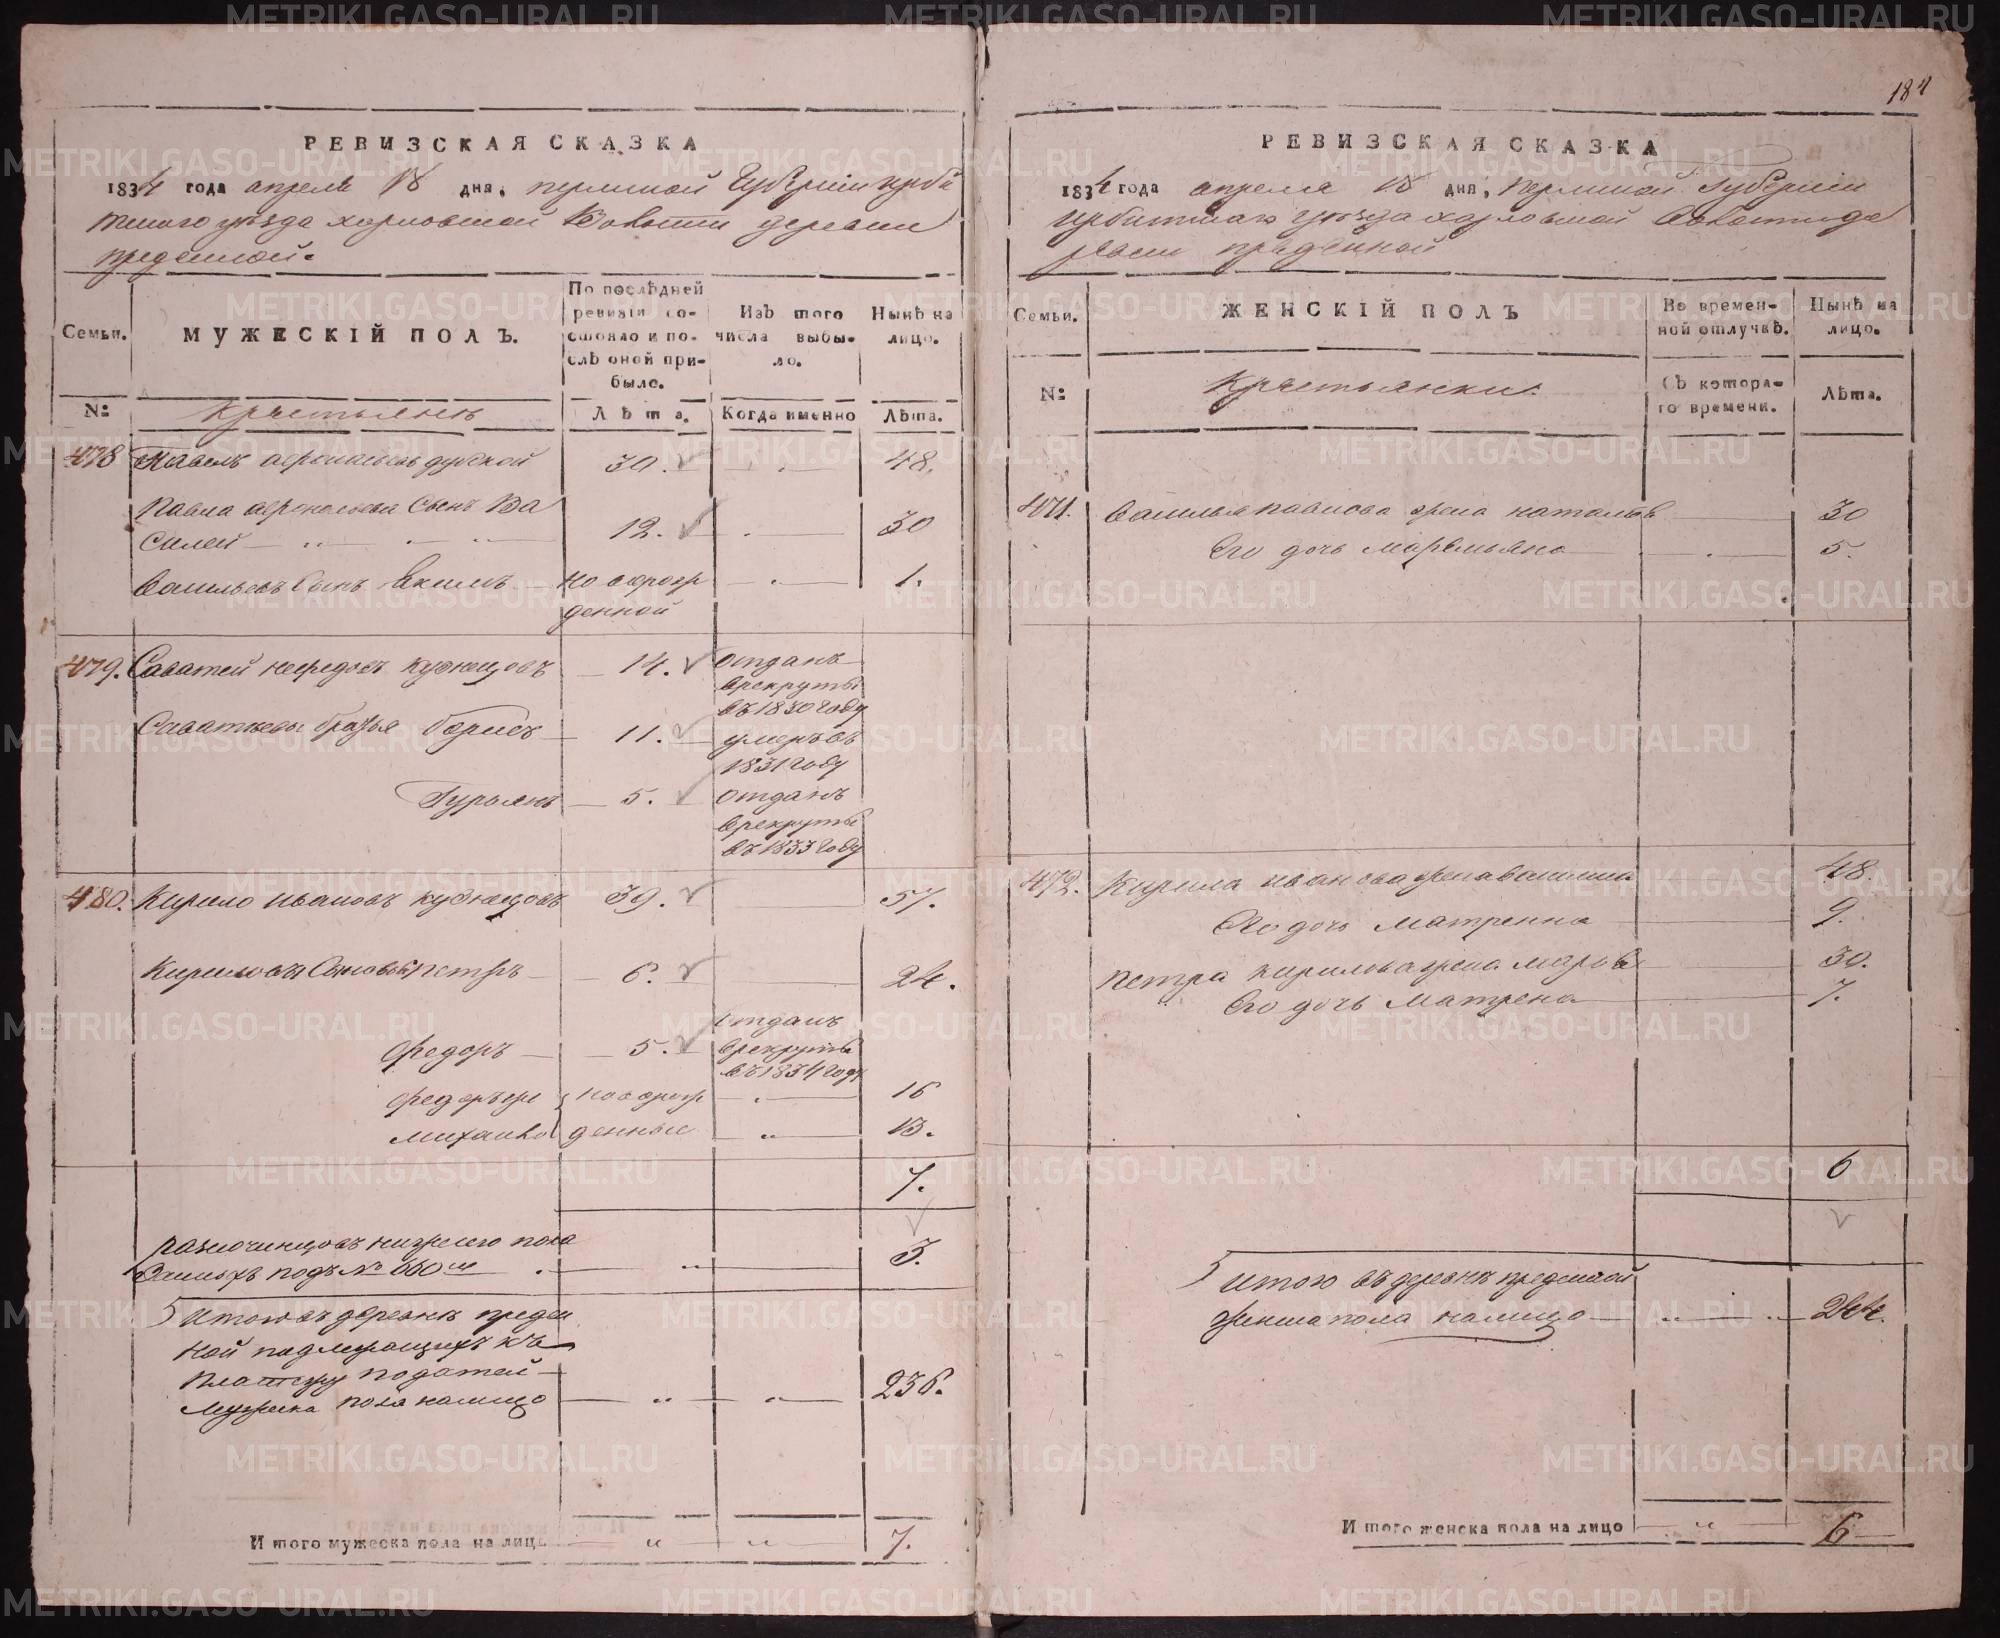 РЕВИЗСКАЯ СКАЗКА
1834 года апреля 18 дня, пермской Губернии ирби
тского уезда харловской Волости деревни
предеиной.
Семьи.
МУЖЕСКІЙ ПОЛЪ.
По послѣдней ревизіи состояло и послѣ оной прибыло.
Изъ того числа выбыло.
Нынѣ на лицо.
№
Крестьянъ
Лѣта.
Когда именно
Лѣта.
478 Павелъ афонасьевъ дубской 30. 48.
Павла афонасьева Сынъ Ва
силей 12. 30
Васильевъ Сынъ Екимъ новорож 1.
денной
479. Саватей нефедовъ кузнецовъ 14. отданъ
врекруты
въ 1830 году
Саватьевы братья борисъ 11. умеръ въ
1831 году
Гурьянъ 5. отданъ
врекруты
въ 1833 году
480. Кирило ивановъ кузнецовъ 39. 57.
Кириловы Сыновья петръ 6. 24.
федоръ 5. отданъ
врекруты
въ 1834 году
федоръ же новорож 16
михайло денные 13.
7.
разночинцовъ мужеского пола
подъ № 3.
Итого въ деревнѣ предеи
ной подлежащихъ къ
платежу податей
Мужеска пола налицо 236.
Итого мужеска пола на лицо 7.
184
РЕВИЗСКАЯ СКАЗКА
1834 года апреля 18 дня, пермской Губернии
ирбитскаго уезда харловской Волости де
ревни предеиной
Семьи.
ЖЕНСКІЙ ПОЛЪ
Во временной отлучкѣ.
Нынѣ на лицо.
№
Крестьянки.
Съ котораго времени.
Лѣта.
471. Василья павлова жена наталья 30
Его дочь маремьяна 5.
472. Кирила иванова жена василиса 48.
Его дочь матренна 9.
петра кирилова жена марфа 30.
Его дочь матрена 7.
6
Итого въ деревнѣ предеиной
женска пола налицо 244.
Итого женска пола на лицо 6
METRIKI.GASO-URAL.RU